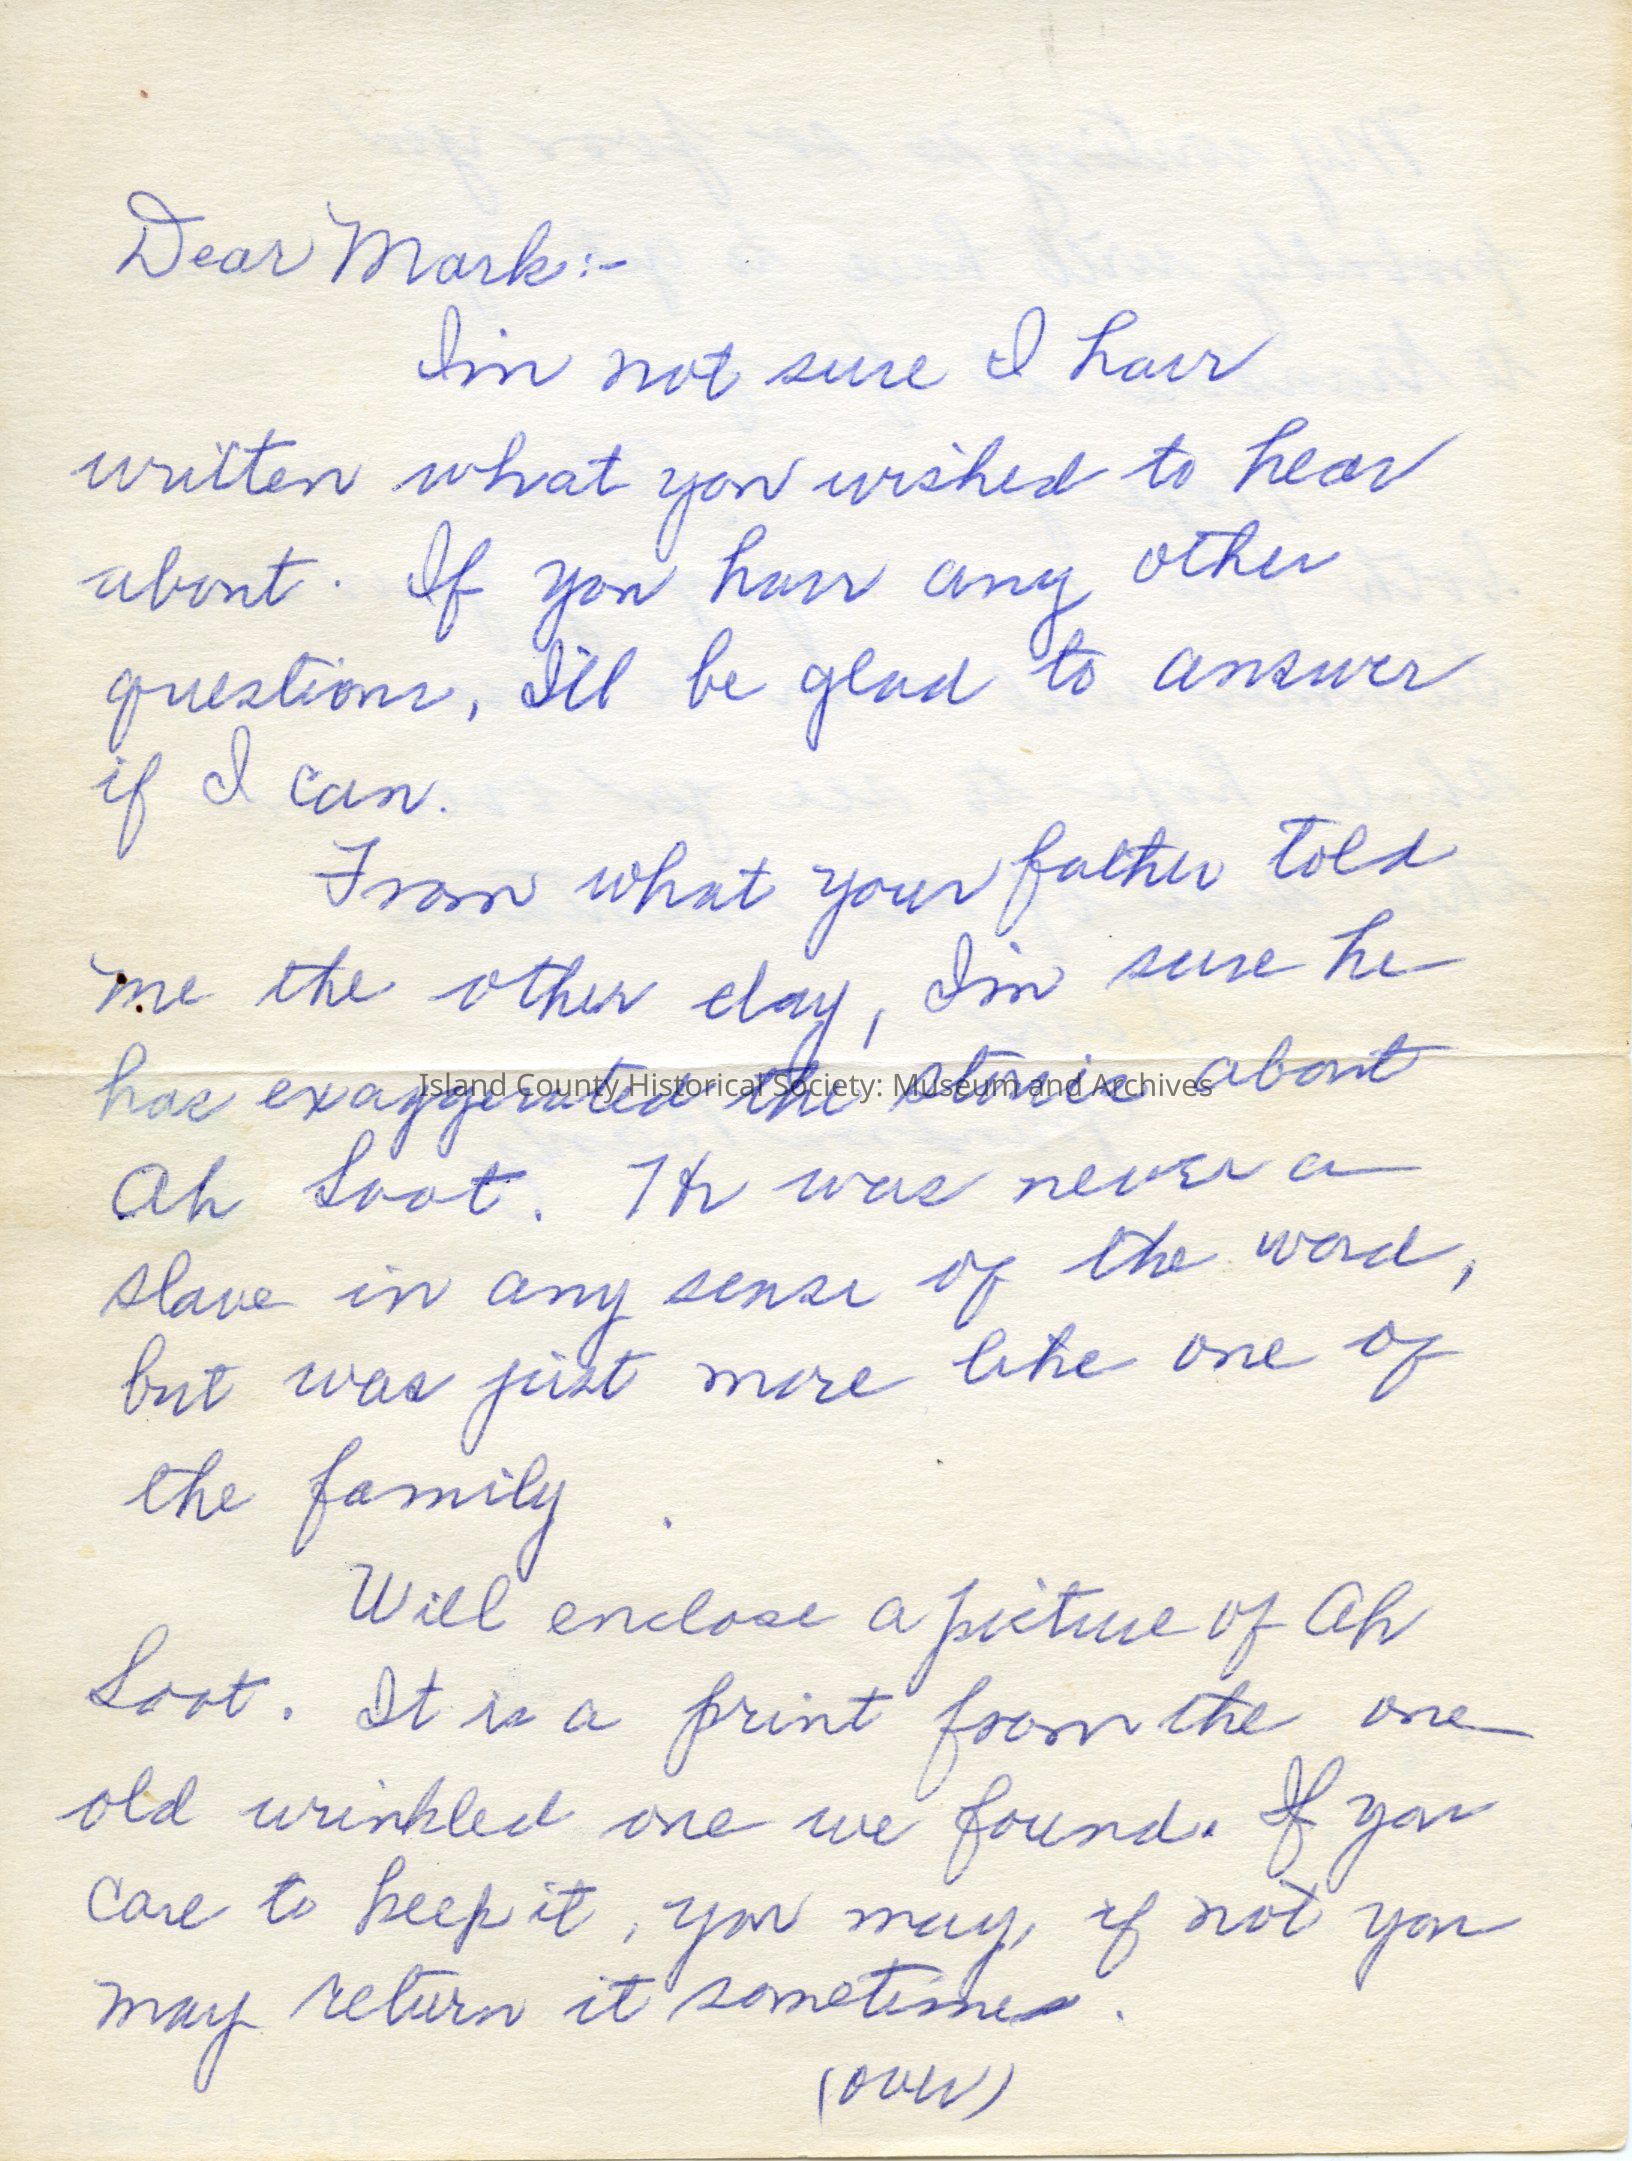 Dear Mark:-
I'm not sure I have
written what you wished to hear
about. If you have any other
questions, I'll be glad to answer
if I can.
From what your father told
me the other day, I'm sure he
has exaggerated the stories about
Island County Historical Society: Museum and Archives
Ah Soot. He was never a
slave in any sense of the word,
but was just more like one of
the family.
Will enclose a picture of Ah
Soot. It is a print from the one
old wrinkled one we found. If you
care to keep it, you may, if not you
may return it sometime.
(over)